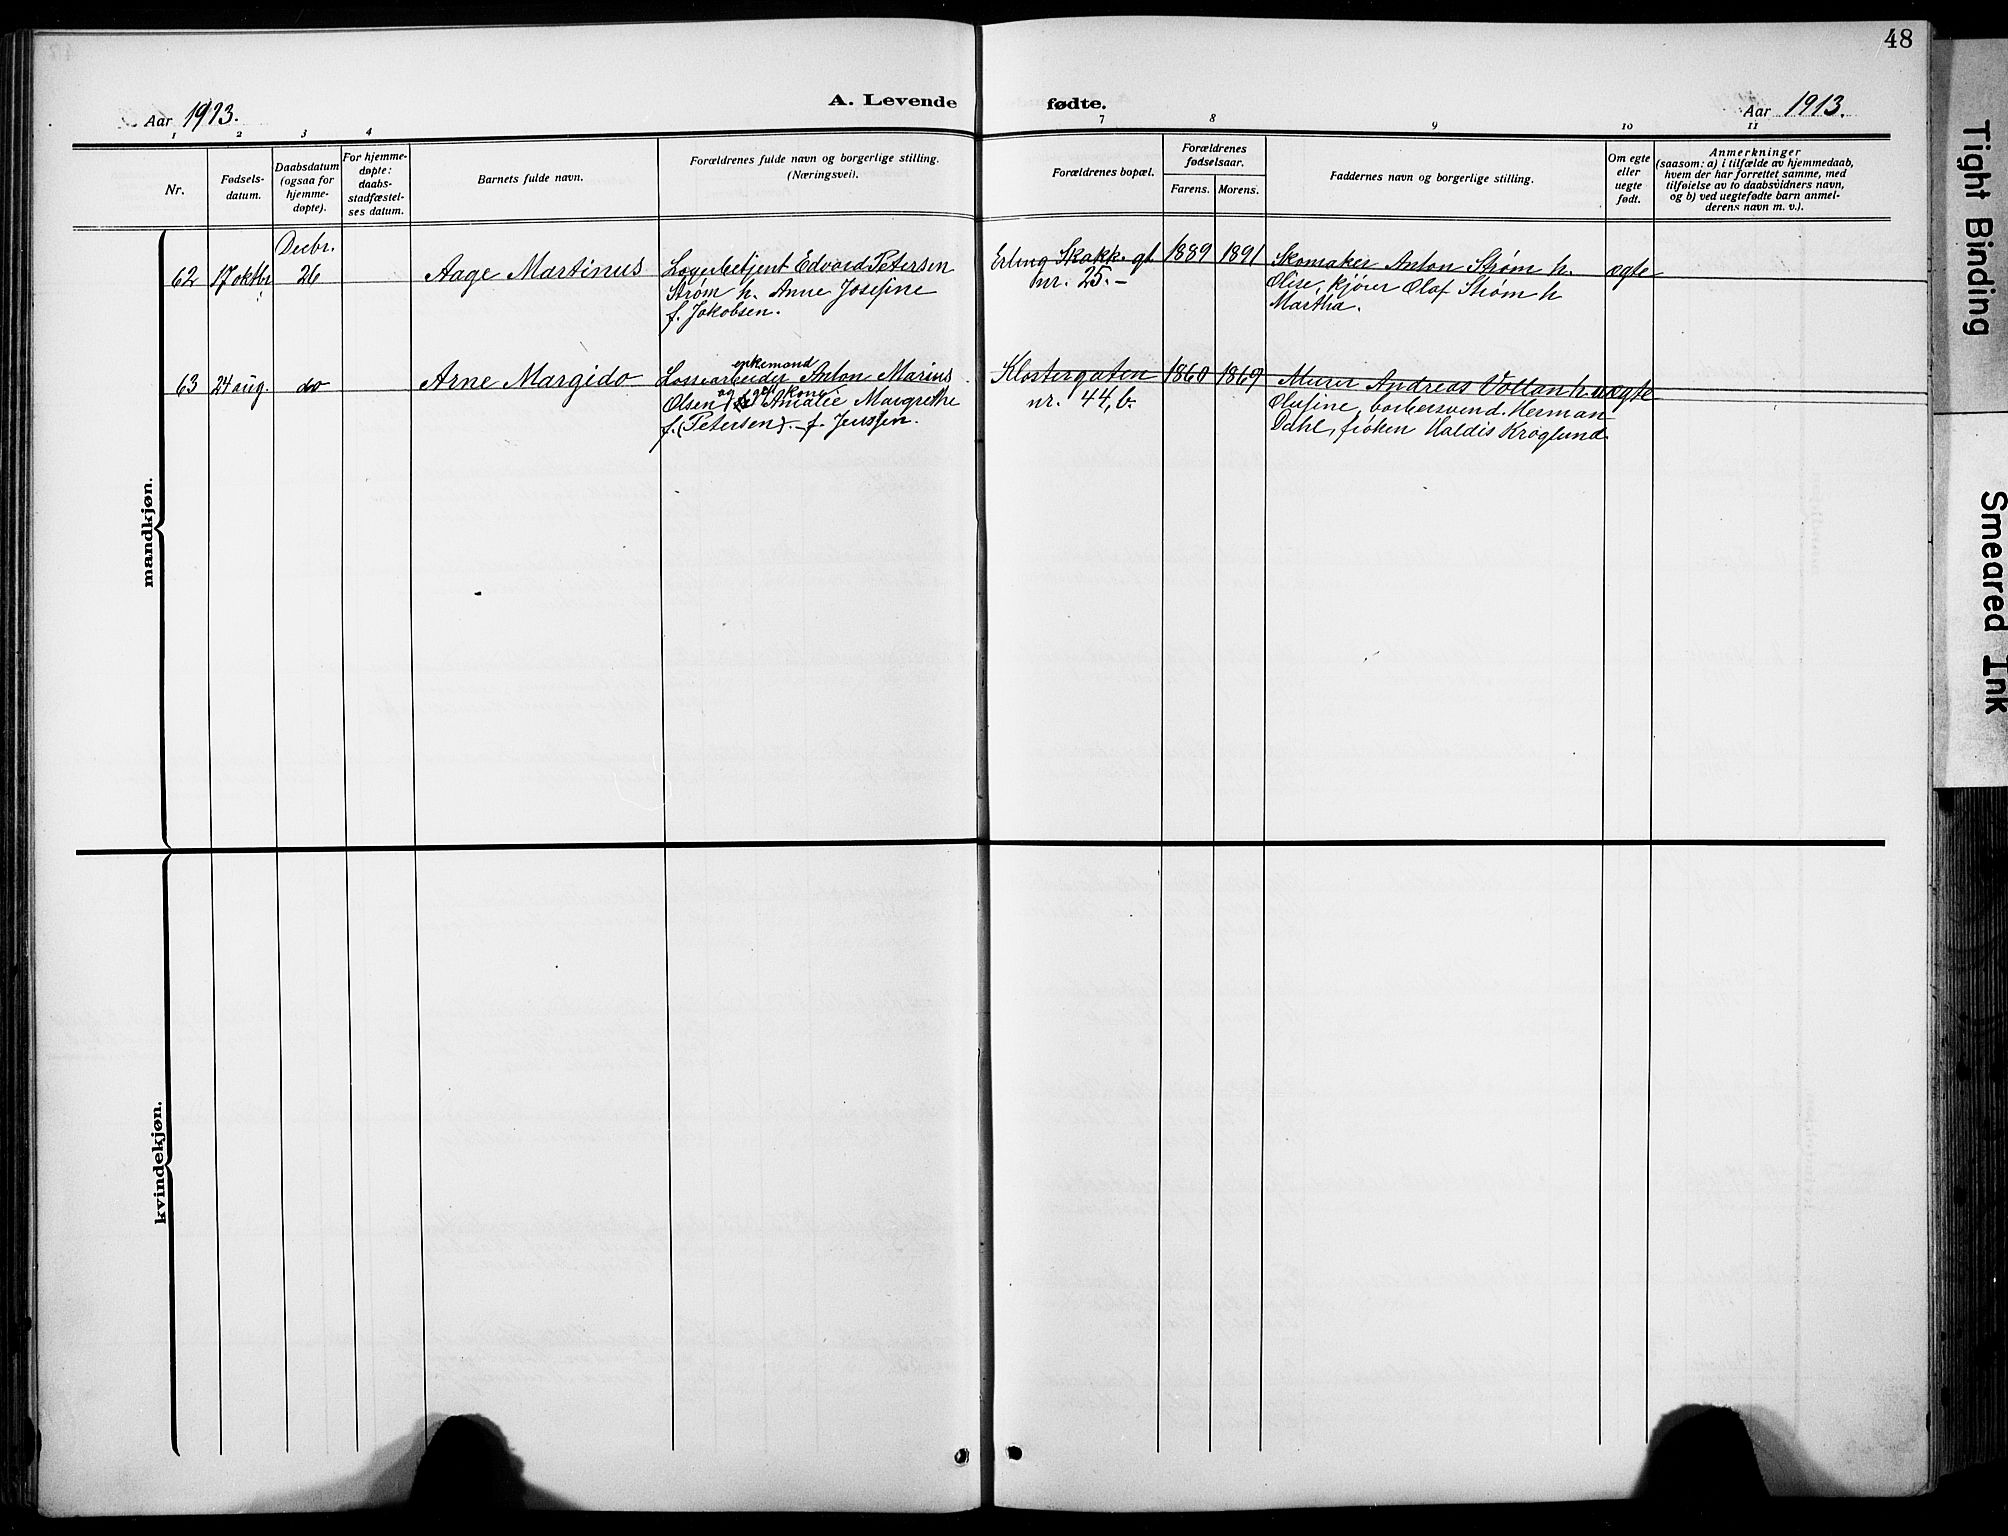 48
Aar 1913.
A. Levende
fødte.
Aar 1913.
1 2 3 4 7 8 9 10 11
Nr.
Fødsels-
datum.
Daabsdatum
(ogsaa for
hjemme-
døpte).
For hjemme-
døpte:
daabs-
stadfæstel-
ses datum.
Barnets fulde navn.
Forældrenes fulde navn og borgerlige stilling.
(Næringsvei).
Forældrenes bopæl.
Forældrenes
fødselsaar.
Farens. Morens.
Faddernes navn og borgerlige stilling.
Om egte
eller
uegte
født.
Anmerkninger
(saasom: a) i tilfælde av hjemmedaab,
hvem der har forrettet samme, med
tilføielse av to daabsvidners navn,
og b) ved uegtefødte barn anmel-
derens navn m. v.).
mandkjøn.
Decbr.
62 17 oktbr 26 Aage Martinus
Lagerbetjent Edvard Petersen
Strøm h. Anne Josefine
f. Jakobsen.
Erling Skakk. gt
nr. 25.-
1889 1891
Skomaker Anton Strøm h.
Olise, kjører Olaf Strøm h
Martha.
ægte
63 24 aug. do Arne Margido
enkemand
Lossearbeider Anton Marius
Olsen og gift kone Amalie Margrethe
f. (Petersen). - f. Jenssen.
Klostergaten
nr. 44, b.
1860 1869
Murer Andreas Voltan h.
Olufine, barbersvend Herman
Dahl, frøken Haldis Kroglund
uægte
kvindekjøn.
Tight Binding
Smeared Ink